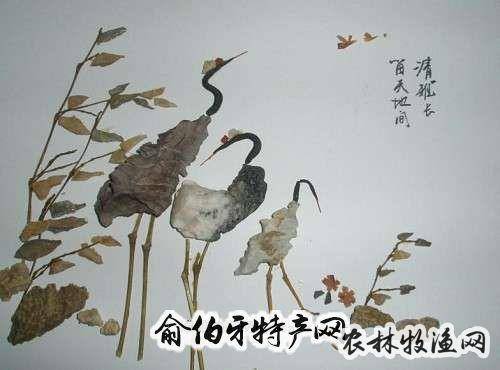 清雅长
留天地间
俞伯牙特产网
农林牧渔网